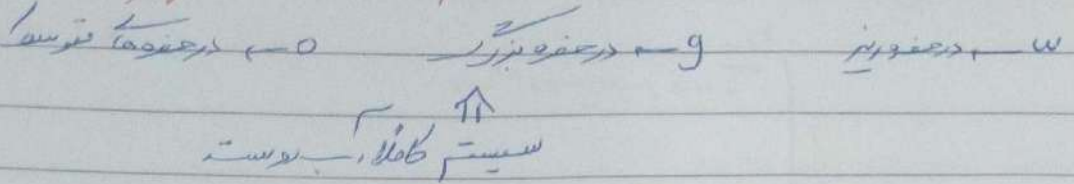 w ـ در حفره ریز g ـ در حفره بزرگ o ـ در حفره‌های متوسط
⇑
سیستم کاملاً پیوسته